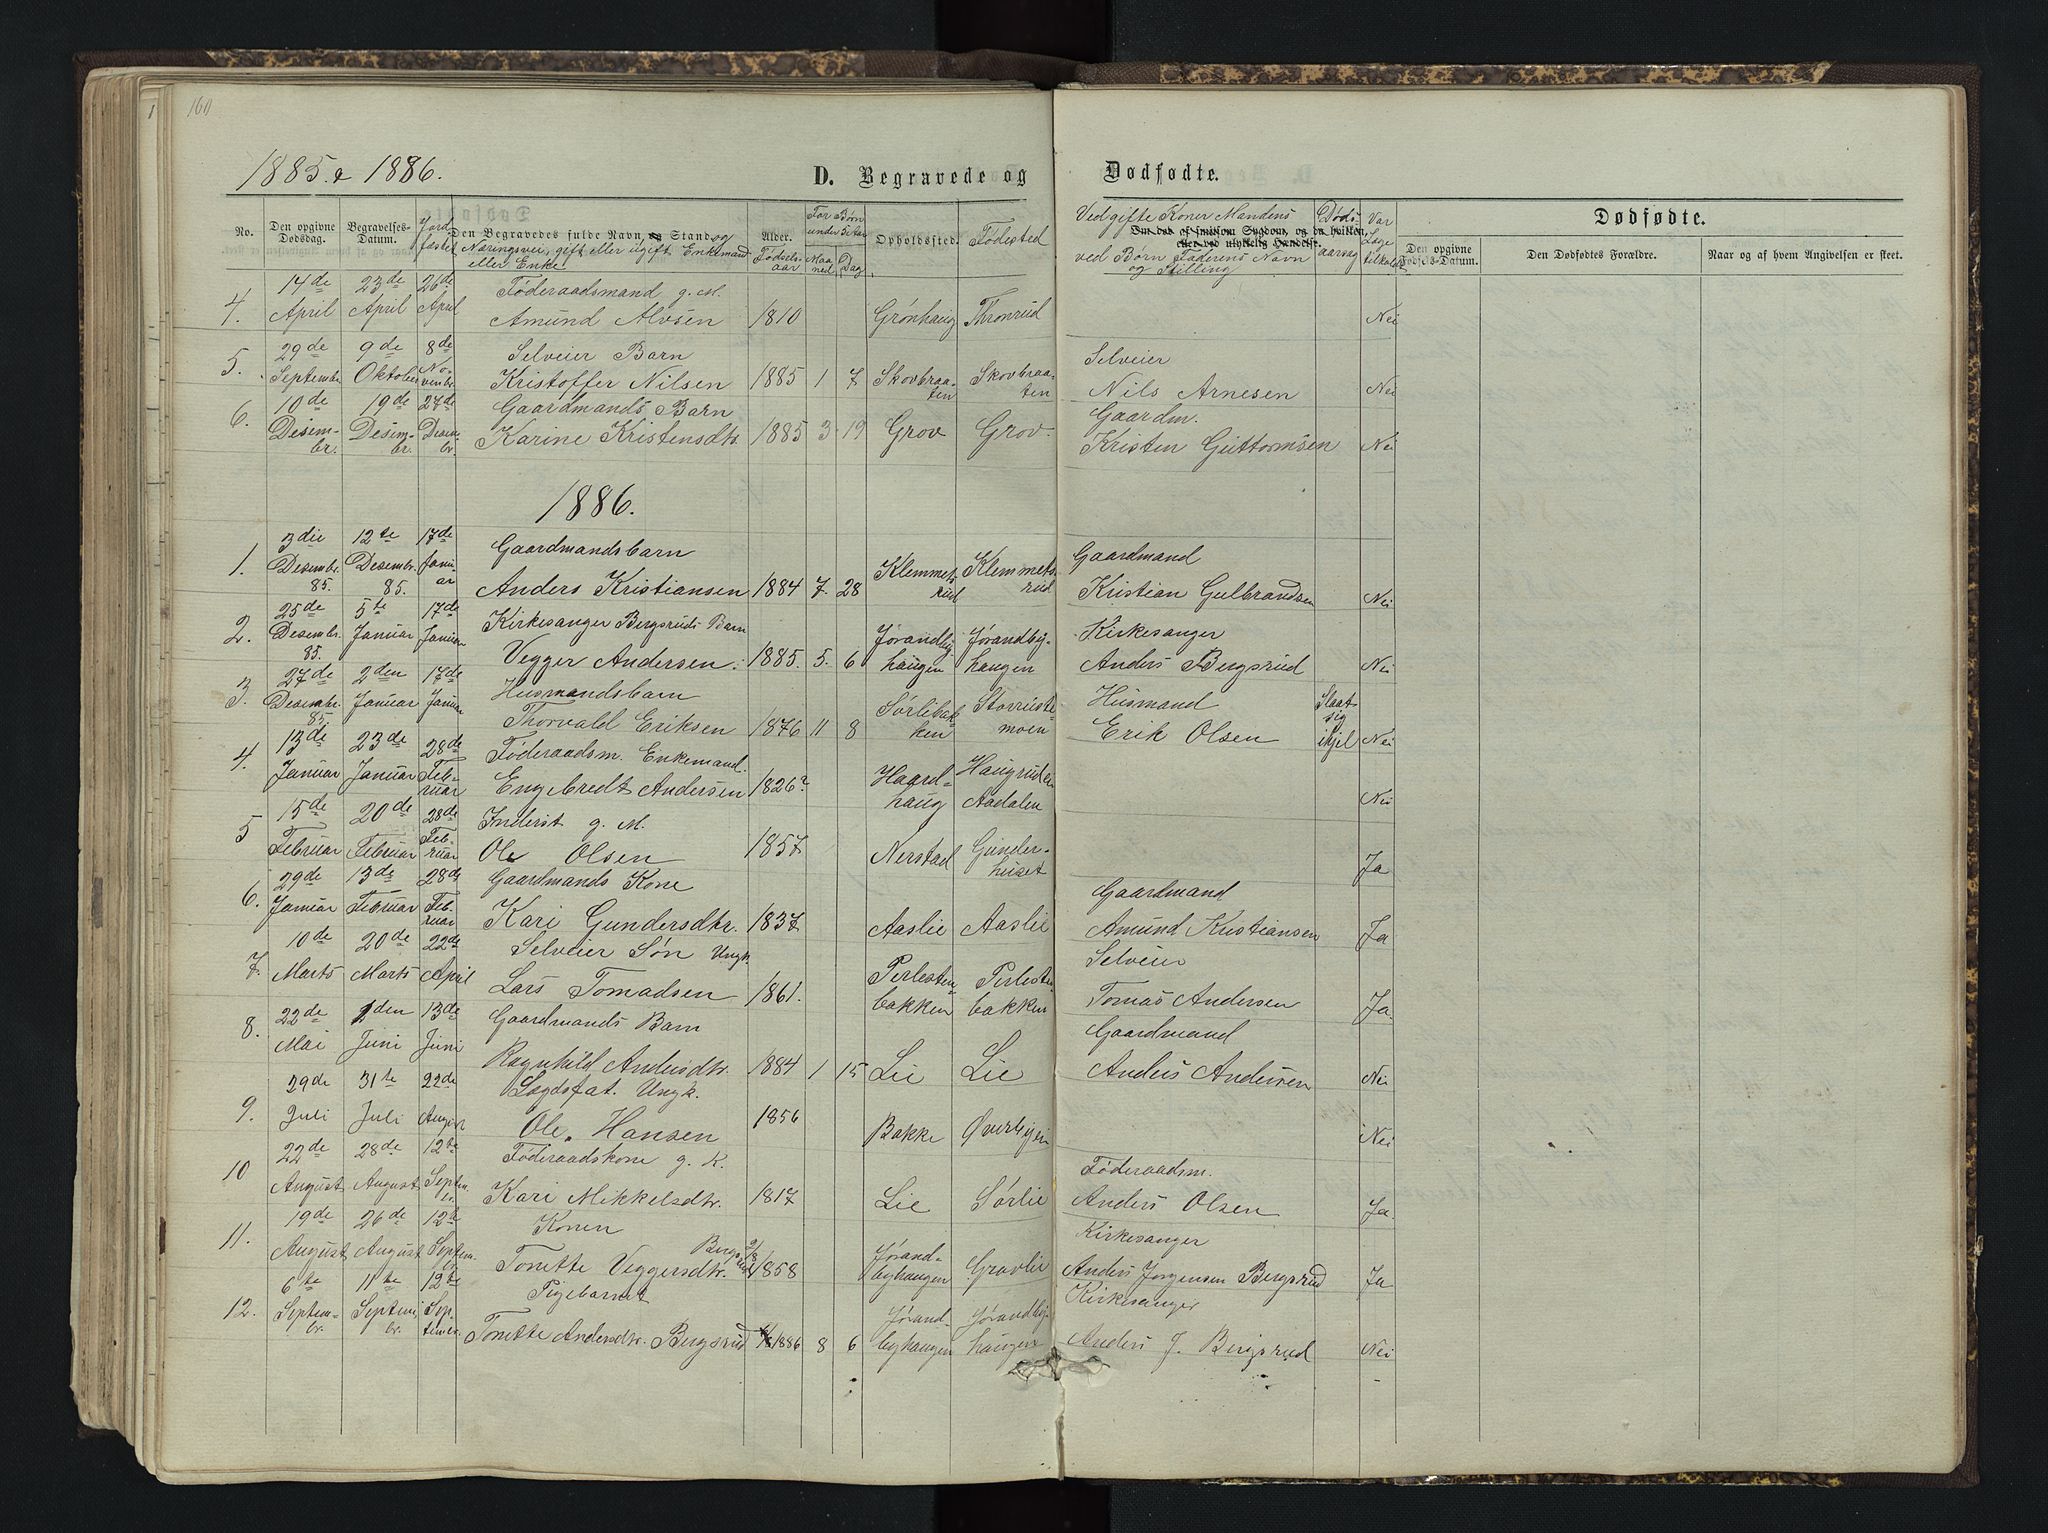 160
1885 & 1886.
D. Begravede og Dødfødte.
No.
Den opgivne Dødsdag.
Begravelses-Datum.
Jord-fæstet
Den Begravedes fulde Navn og Stand og
Næringsvei, gift eller ugift Enkemand
eller Enke.
Alder.
Fødsels-aar
For Børn under 5 Aar
Maa-ned
Dag
Opholdssted.
Fødested
Ved gifte Koner Mandens
Om død af smitsom Sygdom, og da hvilken,
eller ved ulykkelig Hændelse.
ved Børn Faderens Navn
og Stilling
Døds-aarsag
Var Læge tilkaldt
Dødfødte.
Den opgivne Fødsels-Datum.
Den Dødfødtes Forældre.
Naar og af hvem Angivelsen er skeet.
14de 23de 26de Føderaadsmand g. M.
4. April April April Amund Alvsen 1810 Grønhaug Thronrud Nei
29de 9de 8de Selveier Barn Selveier
5. Septembr. Oktober Novembr. Kristoffer Nilsen 1885 1 7 Skovbraaten Skovbraaten Nils Arnesen Nei
10de 19de 27de Gaardmands Barn Gaardm.
6. Desembr. Desembr. Desembr. Karine Kristensdtr. 1885 3 19 Grov Grov. Kristen Guttormsen Nei
1886.
3die 12te 17de Gaardmandsbarn Gaardmand
1. Desembr. 85. Desembr. 85. Januar Anders Kristiansen 1884 7. 28 Klemmetsrud Klemmetsrud Kristian Gulbrandsen Nei
25de 5te 17de Kirkesanger Bergsruds Barn Kirkesanger
2. Desembr. 85. Januar Januar Vegger Andersen. 1885. 5. 6 Jørandbyhaugen Jørandbyhaugen Anders Bergsrud Nei
27de 2den 17de Husmandsbarn Husmand
3. Desembr. 85. Januar Januar Thorvald Eriksen 1876 11 8 Sørlibakken Storrustemoen Erik Olsen Slaat sig ihjel Nei
13de 23de 28de Føderaadsm. Enkemand.
4. Januar Januar Februar Engebredt Andersen 1826? Haardhaug Haugrud Aadalen Nei
15de 20de 28de Inderst g. M.
5 Februar Februar Februar Ole Olsen 1857 Nerstad Gunderhuset Ja
29de 13de 28de Gaardmands Kone Gaardmand
6. Januar Februar Februar Kari Gundersdtr. 1837 Aaslie Aaslie Amund Kristiansen Ja
10de 20de 22de Selveier Søn Ungk. Selveier
7. Marts Marts April Lars Tomadsen 1861. Perlestenbakken Perlestenbakken Tomas Andersen Ja.
22de 2den 13de Gaardmands Barn Gaardmand
8. Mai Juni Juni Ragnhild Andersdtr. 1884 1 15 Lie Lie Anders Andersen Nei
29de 31te 22de Lægdsfat. Ungk.
9. Juli Juli August Ole Hansen 1856 Bakke Øverbyen Nei
22de 28de 12te Føderaadskone g. K. Føderaadsm.
10 August August Septembr. Kari Mikkelsdtr. 1817 Lie Sørlie Anders Olsen Ja.
19de 26de 12te Konen Kirkesanger
11. August August Septem. Tonette Veggersdtr. Bergsrud 2/8 1858 Jørandbyhaugen Gravlie Anders Jørgensen Bergsrud Ja
6te 11te 12te Pigebarnet Kirkesanger
12. Septembr. Septembr. Septembr. Tonette Andersdtr. Bergsrud 1886 8 6 Jørandbyhaugen Jørandbyhaugen Anders J. Bergsrud Nei